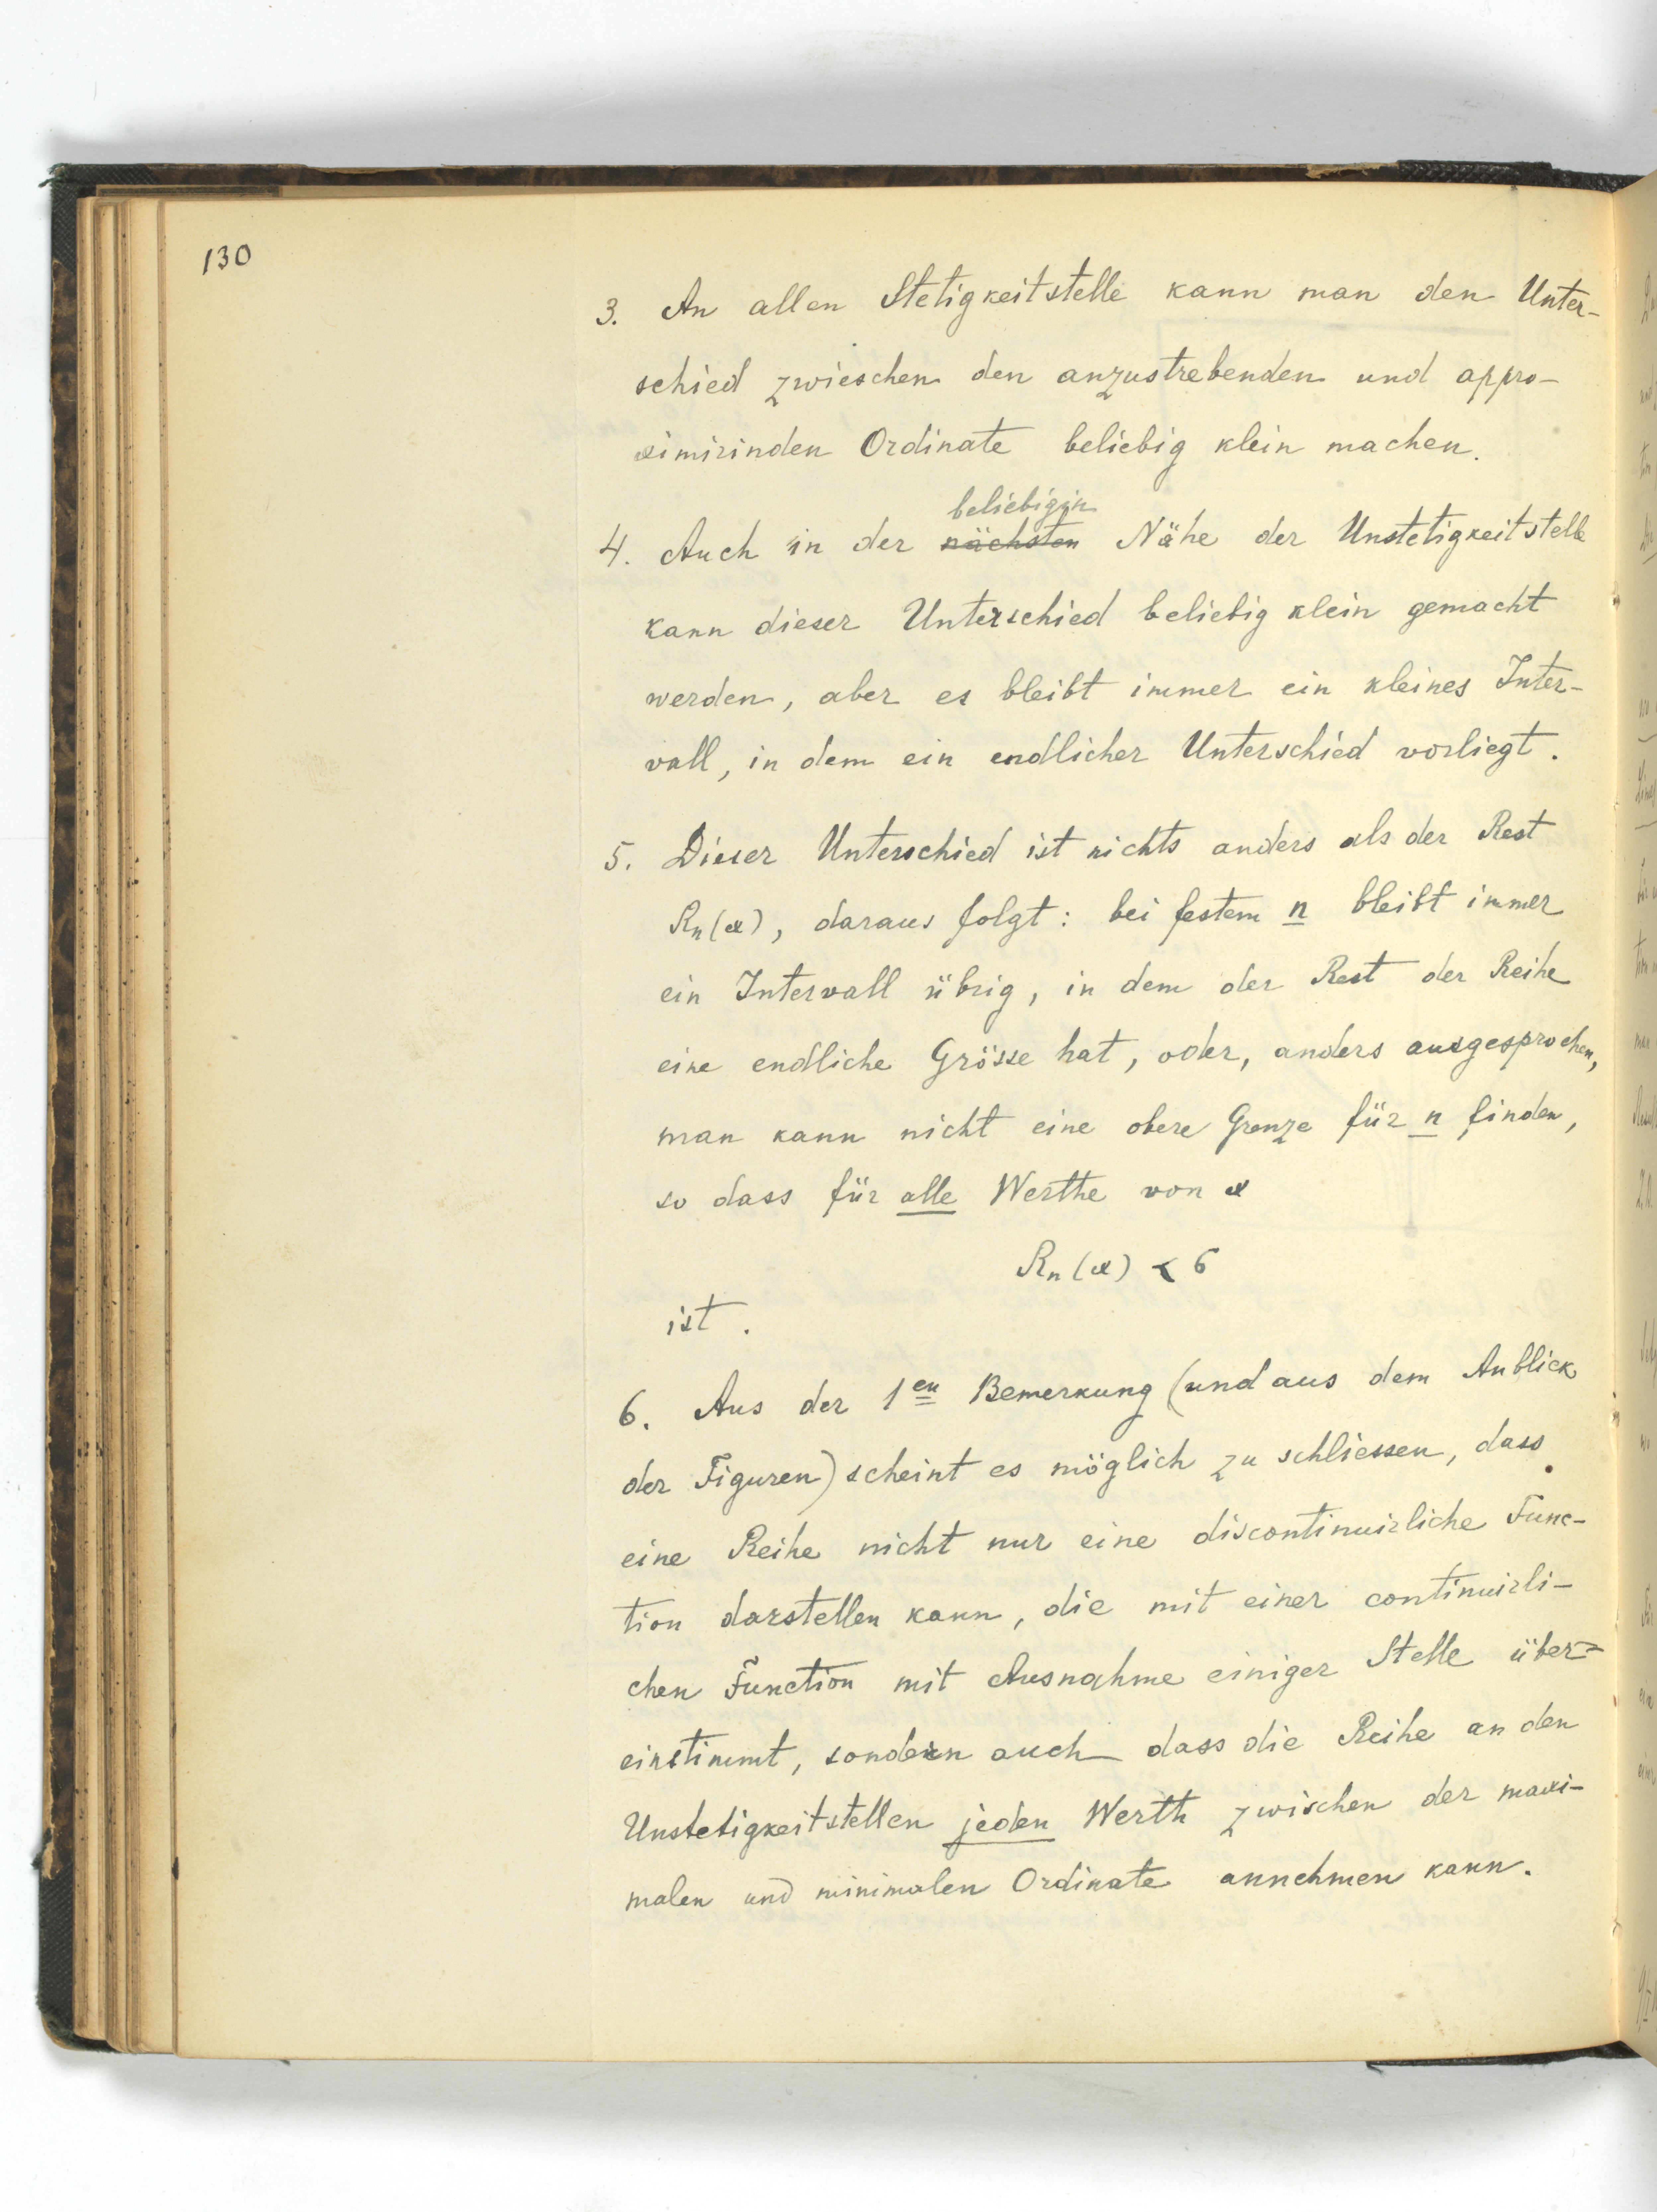 130
3. An allen Stetigkeitstelle kann man den Unter-
schied zwieschen den anzustrebenden und appro-
ximirinden Ordinate beliebig klein machen.
beliebigin
4. Auch in der nächsten Nähe der Unstetigkeitstelle
kann dieser Unterschied beliebig klein gemacht
werden, aber es bleibt immer ein kleines Inter-
vall, in dem ein endlicher Unterschied vorliegt.
5. Dieser Unterschied ist nichts anders als der Rest
Rn(x), daraus folgt: bei festem n bleibt immer
ein Intervall übrig, in dem der Rest der Reihe
eine endliche Grösse hat, oder, anders ausgesprochen,
man kann nicht eine obere Grenze für n finden,
so dass für alle Werthe von x
Rn(x) < 6
ist.
6. Aus der 1en Bemerkung (und aus dem Anblick
der Figuren) scheint es möglich zu schliessen, dass
eine Reihe nicht nur eine discontinuirliche Func-
tion darstellen kann, die mit einer continuirli-
chen Function mit Ausnahme einiger Stelle über-
einstimmt, sondern auch dass die Reihe an den
Unstetigkeitstellen jeden Werth zwischen der maxi-
malen und minimalen Ordinate annehmen kann.